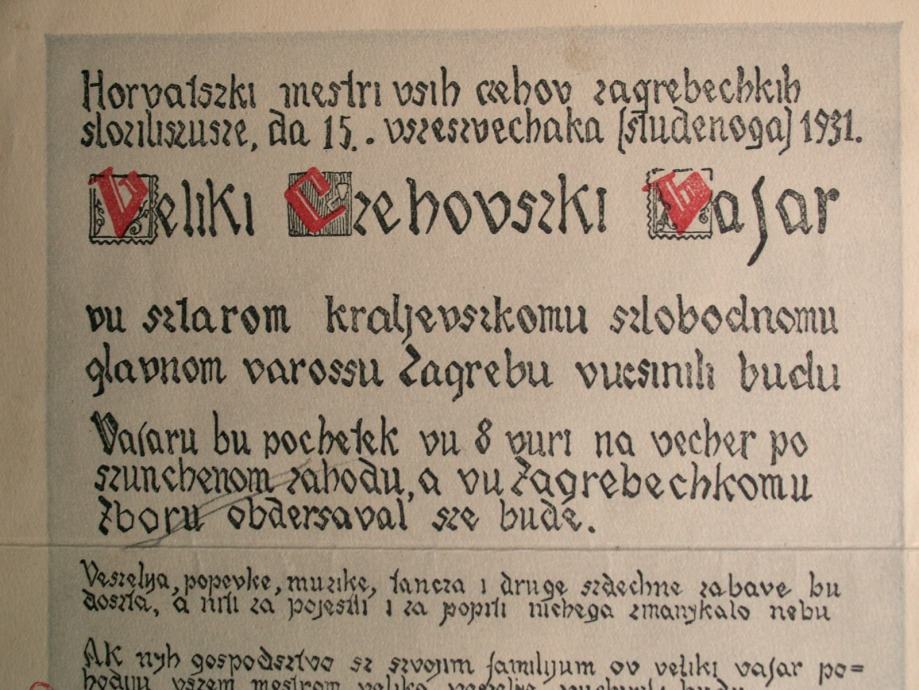 Horvatszki mestri vsih czehov zagrebechkih
sloziliszusze, da 15. . vszeszvechaka (studenoga) 1931.
Veliki Czehovszki Vaſar
vu sztarom kraljevszkomu szlobodnomu
glavnom varossu Zagrebu vucsinili budu
Vaſaru bu pochetek vu 8 vuri na vecher po
szunchenom zahodu, a vu Zagrebechkomu
Zboru obdersaval sze bude.
Veszelya, popevke, muzike, tancza i druge szdechne zabave bu
doszta, a niti za pojesti i za popiti nichega zmanykalo nebu
Ak nyh gospodsztvo sz szvojim familijum ov veliki vaſar po=
hodiju vszem mestrom veliko veszelje